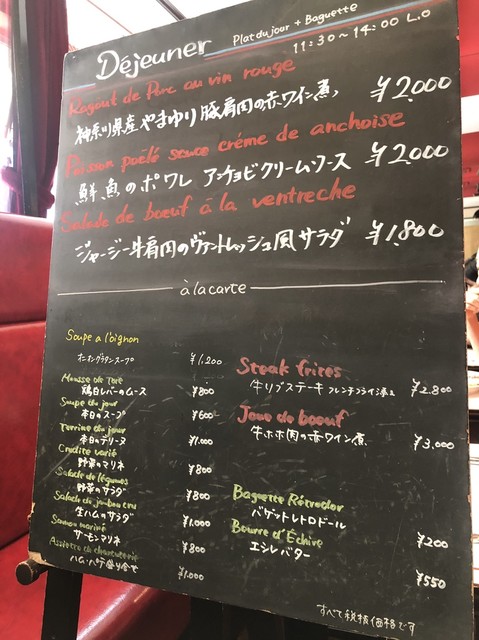 Déjeuner Plat du jour + Baguette
11:30~14:00 L.O
Ragout de Porc au vin rouge
神奈川県産やまゆり豚肩肉の赤ワイン煮 ¥2,000
Poisson poêlé sauce crème de anchoise
鮮魚のポワレ アンチョビクリームソース ¥2,000
Salade de boeuf à la ventreche
ジャージー牛肩肉のヴァントレッシュ風サラダ ¥1,800
à la carte
Soupe a l'oignon
オニオングラタンスープ ¥1,200
Mousse de foie
鶏白レバーのムース ¥800
Soupe du jour
本日のスープ ¥600
Terrine du jour
本日のテリーヌ ¥1,000
Crudité varié
野菜のマリネ ¥800
Salade de légumes
野菜のサラダ ¥800
Salade de jambon cru
生ハムのサラダ ¥1,000
Saumon mariné
サーモンマリネ ¥800
Assiette de charcuterie
ハム・パテ盛り合せ ¥1,000
Steak frites
牛リブステーキ フレンチフライ添え ¥2,800
Joue de boeuf
牛ホホ肉の赤ワイン煮 ¥3,000
Baguette Rétrodor
バゲットレトロドール ¥200
Beurre d'Échiré
エシレバター ¥550
すべて税抜価格です